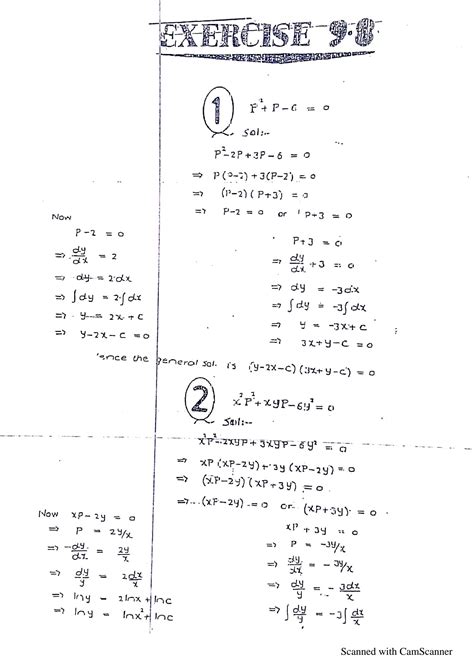 EXERCISE 9.8
1 P²+P-6 = 0
Sol:-
P²-2P+3P-6 = 0
⇒ P(P-2)+3(P-2) = 0
⇒ (P-2)(P+3) = 0
⇒ P-2 = 0 or P+3 = 0
Now
P-2 = 0
⇒ dy/dx = 2
⇒ dy = 2·dx
⇒ ∫dy = 2·∫dx
⇒ y = 2x + C
⇒ y-2x-C = 0
P+3 = 0
⇒ dy/dx +3 = 0
⇒ dy = -3dx
⇒ ∫dy = -3∫dx
⇒ y = -3x+C
⇒ 3x+y-C = 0
the general sol. is (y-2x-C)(3x+y-C) = 0
2 x²P²+xyP-6y² = 0
Sol:-
x²P²-2xyP+3xyP-6y² = 0
⇒ xP(xP-2y)+3y(xP-2y) = 0
⇒ (xP-2y)(xP+3y) = 0
⇒ (xP-2y) = 0 or (xP+3y) = 0
Now xP-2y = 0
⇒ P = 2y/x
⇒ dy/dx = 2y/x
⇒ dy/y = 2dx/x
⇒ lny = 2lnx + lnc
⇒ lny = lnx² + lnc
xP + 3y = 0
⇒ P = -3y/x
⇒ dy/dx = -3y/x
⇒ dy/y = -3dx/x
⇒ ∫dy/y = -3∫dx/x
Scanned with CamScanner